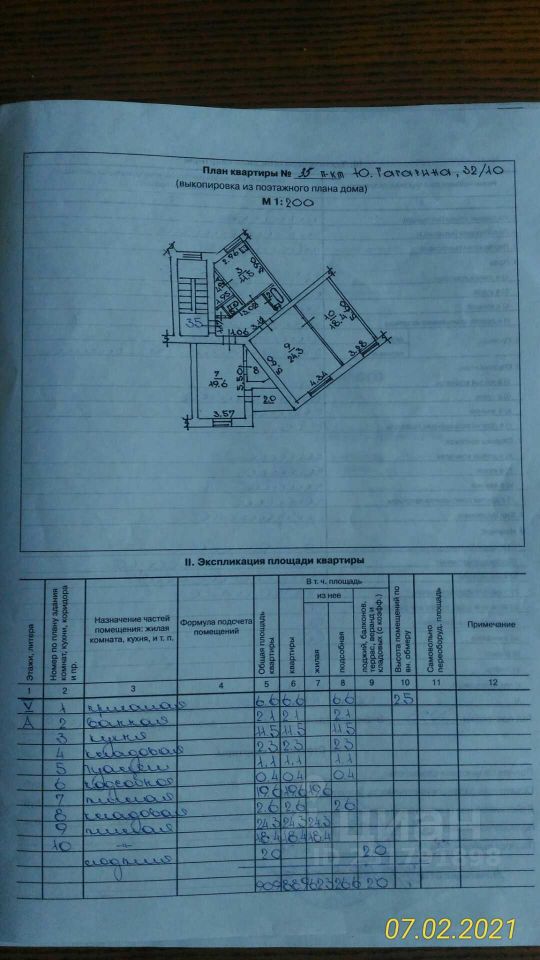 План квартиры № 35 п-кт Ю. Гагарина, 32/10
(выкопировка из поэтажного плана дома)
М 1: 200
2.96
3
11.5
35
1.06
3.12
10
18.4
9
24.3
3.28
4.34
7
19.6
5.50
8
2.0
3.57
II. Экспликация площади квартиры
Этажи, литера
Номер по плану здания комнат, кухни, коридора и пр.
Назначение частей помещения: жилая комната, кухня, и т. п.
Формула подсчета помещений
Общая площадь квартиры
В т. ч. площадь
квартиры
из нее
жилая
подсобная
лоджий, балконов, террас, веранд и кладовых (с коэфф.)
Высота помещений по вн. обмеру
Самовольно переоборуд. площадь
Примечание
1 2 3 4 5 6 7 8 9 10 11 12
V 1 прихожая 6.6 6.6 6.6 2.5
А 2 ванная 2.1 2.1 2.1
3 кухня 11.5 11.5 11.5
4 кладовая 2.3 2.3 2.3
5 туалет 1.1 1.1 1.1
6 подсобная 0.4 0.4 0.4
7 жилая 19.6 19.6 19.6
8 кладовая 2.6 2.6 2.6
9 жилая 24.3 24.3 24.3
10 -"- 18.4 18.4 18.4
лоджия 2.0 2.0
90.9 88.9 62.3 26.6 2.0
циан
07.02.2021